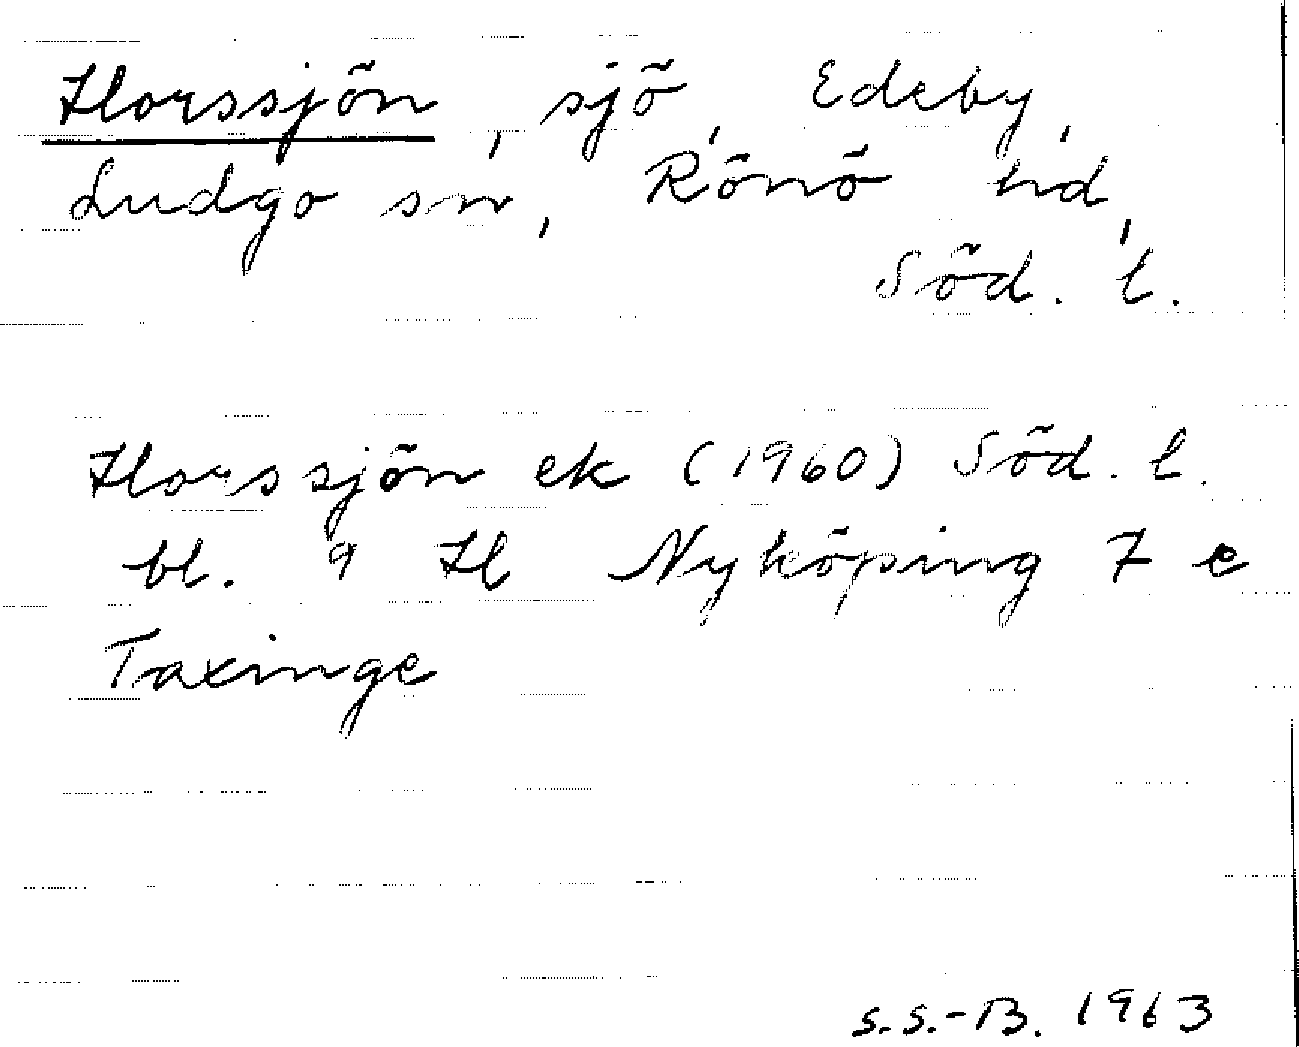 Horssjön, sjö, Edeby,
Ludgo sn, Rönö hd,
Söd. l.
Horssjön ek (1960) Söd. l.
bl. 9 H Nyköping 7 e
Taxinge
S.S.-B. 1963